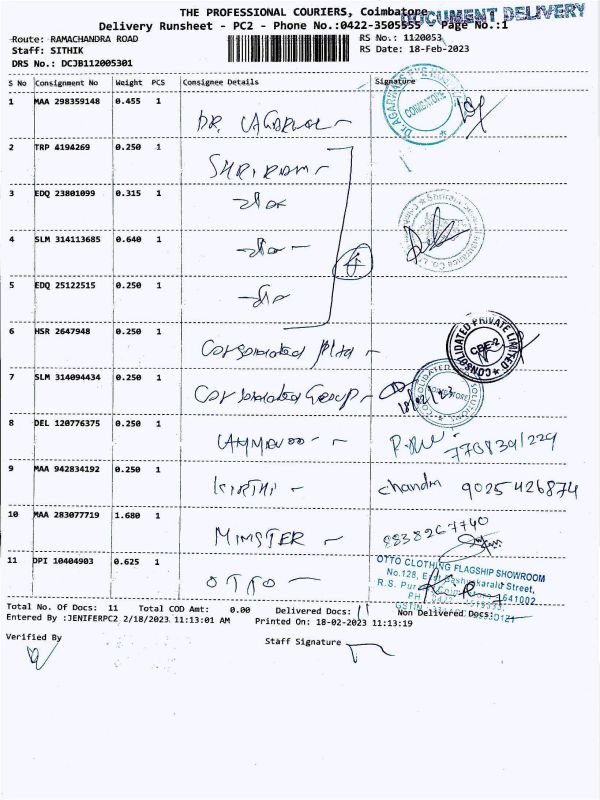 THE PROFESSIONAL COURIERS, Coimbatore
DOCUMENT DELIVERY
Delivery Runsheet - PC2 - Phone No.:0422-3505555 Page No.:1
Route: RAMACHANDRA ROAD
RS No.: 1120053
Staff: SITHIK
RS Date: 18-Feb-2023
DRS No.: DCJB112005301
S No Consignment No Weight PCS Consignee Details Signature
1 MAA 298359148 0.455 1 DR. AGARWAL
COIMBATORE
2 TRP 4194269 0.250 1 SHRIRAM
3 EDQ 23801099 0.315 1
4 SLM 314113685 0.640 1
4
5 EDQ 25122515 0.250 1
6 HSR 2647948 0.250 1 Consolidated
CONSOLIDATED PRIVATE LIMITED
CBE-2
7 SLM 314094434 0.250 1 Consolidated Group
18/02/23
8 DEL 120776375 0.250 1
9 MAA 942834192 0.250 1 KIRTHI Chandra 9025426874
10 MAA 283077719 1.680 1 MINISTER 8838267740
11 DPI 10404903 0.625 1 OTTO
OTTO CLOTHING FLAGSHIP SHOWROOM
No.128, Street,
R.S. Pur 641002
Total No. Of Docs: 11 Total COD Amt: 0.00 Delivered Docs: 11 Non Delivered Docs:
Entered By :JENIFERPC2 2/18/2023 11:13:01 AM Printed On: 18-02-2023 11:13:19
Verified By
Staff Signature